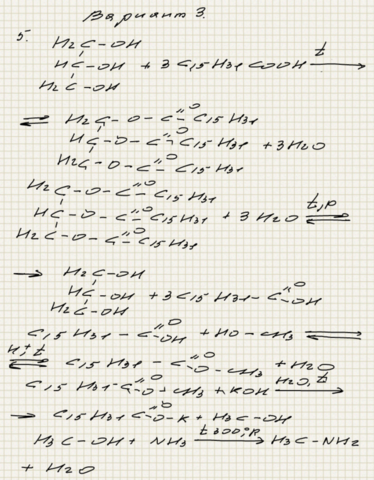 Вариант 3.
5. H2C-OH
HC-OH + 3 C15H31COOH t→
H2C-OH
⇌ H2C-O-C=O C15H31
HC-O-C=O C15H31 + 3H2O
H2C-O-C=O C15H31
H2C-O-C=O C15H31
HC-O-C=O C15H31 + 3H2O t,p⇌
H2C-O-C=O C15H31
→ H2C-OH
HC-OH + 3 C15H31-C=O-OH
H2C-OH
C15H31-C=O-OH + HO-CH3 ⇌
H,+t⇌ C15H31-C=O-O-CH3 + H2O
C15H31-C=O-O-CH3 + KOH H2O,t→
→ C15H31 C=O-O-K + H3C-OH
H3C-OH + NH3 t300;p→ H3C-NH2
+ H2O